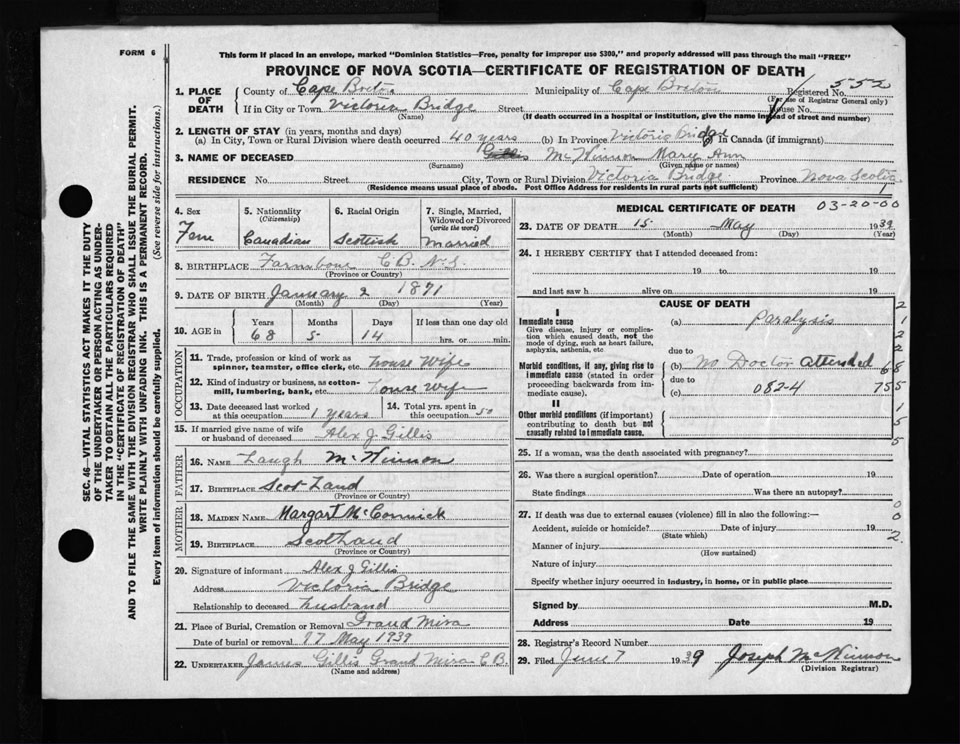 FORM 6
This form if placed in an envelope, marked "Dominion Statistics—Free, penalty for improper use $300," and properly addressed will pass through the mail "FREE"
PROVINCE OF NOVA SCOTIA—CERTIFICATE OF REGISTRATION OF DEATH
SEC. 46—VITAL STATISTICS ACT MAKES IT THE DUTY
OF THE UNDERTAKER OR PERSON ACTING AS UNDER-
TAKER TO OBTAIN ALL THE PARTICULARS REQUIRED
IN THE "CERTIFICATE OF REGISTRATION OF DEATH"
AND TO FILE THE SAME WITH THE DIVISION REGISTRAR WHO SHALL ISSUE THE BURIAL PERMIT.
WRITE PLAINLY WITH UNFADING INK. THIS IS A PERMANENT RECORD.
Every item of information should be carefully supplied. (See reverse side for instructions.)
1. PLACE OF DEATH County of Cape Breton Municipality of Cape Breton Registered No. 552
(For use of Registrar General only)
If in City or Town Victoria Bridge Street House No.
(Name) (If death occurred in a hospital or institution, give the name instead of street and number)
2. LENGTH OF STAY (in years, months and days)
(a) In City, Town or Rural Division where death occurred 40 years (b) In Province Victoria Bridge (c) In Canada (if immigrant)
3. NAME OF DECEASED Gillis McKinnon Mary Ann
(Surname) (Given name or names)
RESIDENCE No. Street City, Town or Rural Division Victoria Bridge Province Nova Scotia
(Residence means usual place of abode. Post Office Address for residents in rural parts not sufficient) 1
4. Sex Fem
5. Nationality (Citizenship) Canadian
6. Racial Origin Scottish
7. Single, Married, Widowed or Divorced (write the word) Married
8. BIRTHPLACE C.B. N.S.
(Province or Country)
9. DATE OF BIRTH January 2 1871
(Month) (Day) (Year)
10. AGE in Years 68 Months 5 Days 14 If less than one day old hrs. or min.
OCCUPATION
11. Trade, profession or kind of work as spinner, teamster, office clerk, etc. House Wife
12. Kind of industry or business, as cotton-mill, lumbering, bank, etc. House wife
13. Date deceased last worked at this occupation 1 years 14. Total yrs. spent in this occupation 50
15. If married give name of wife or husband of deceased Alex J. Gillis
FATHER
16. NAME Laugh McKinnon
17. BIRTHPLACE Scot Land
(Province or Country)
MOTHER
18. MAIDEN NAME Margart McCormick
19. BIRTHPLACE Scothland
(Province or Country)
20. Signature of informant Alex J Gillis
Address Victoria Bridge
Relationship to deceased husband
21. Place of Burial, Cremation or Removal Grand Mira
Date of burial or removal 17 May 1939
22. UNDERTAKER James Gillis Grand Mira C B.
(Name and address)
MEDICAL CERTIFICATE OF DEATH 03-20-00
23. DATE OF DEATH 15 May 1939
(Month) (Day) (Year)
24. I HEREBY CERTIFY that I attended deceased from:
19 to 19
and last saw h alive on 19
CAUSE OF DEATH
I
Immediate cause
Give disease, injury or complication which caused death, not the mode of dying, such as heart failure, asphyxia, asthenia, etc
(a) Paralysis
due to
Morbid conditions, if any, giving rise to immediate cause (stated in order proceeding backwards from immediate cause).
(b) No Doctor attended
due to
(c) 082-4
II
Other morbid conditions (if important) contributing to death but not causally related to immediate cause.
2
1
2
2
68
755
1
5
5
25. If a woman, was the death associated with pregnancy?
26. Was there a surgical operation? Date of operation 19
State findings Was there an autopsy?
27. If death was due to external causes (violence) fill in also the following:— 0
Accident, suicide or homicide? Date of injury 19 0
(State which) 2
Manner of injury
(How sustained)
Nature of injury
Specify whether injury occurred in industry, in home, or in public place
Signed by M.D.
Address Date 19
28. Registrar's Record Number
29. Filed June 7 1939 Joseph McKinnon
(Division Registrar)